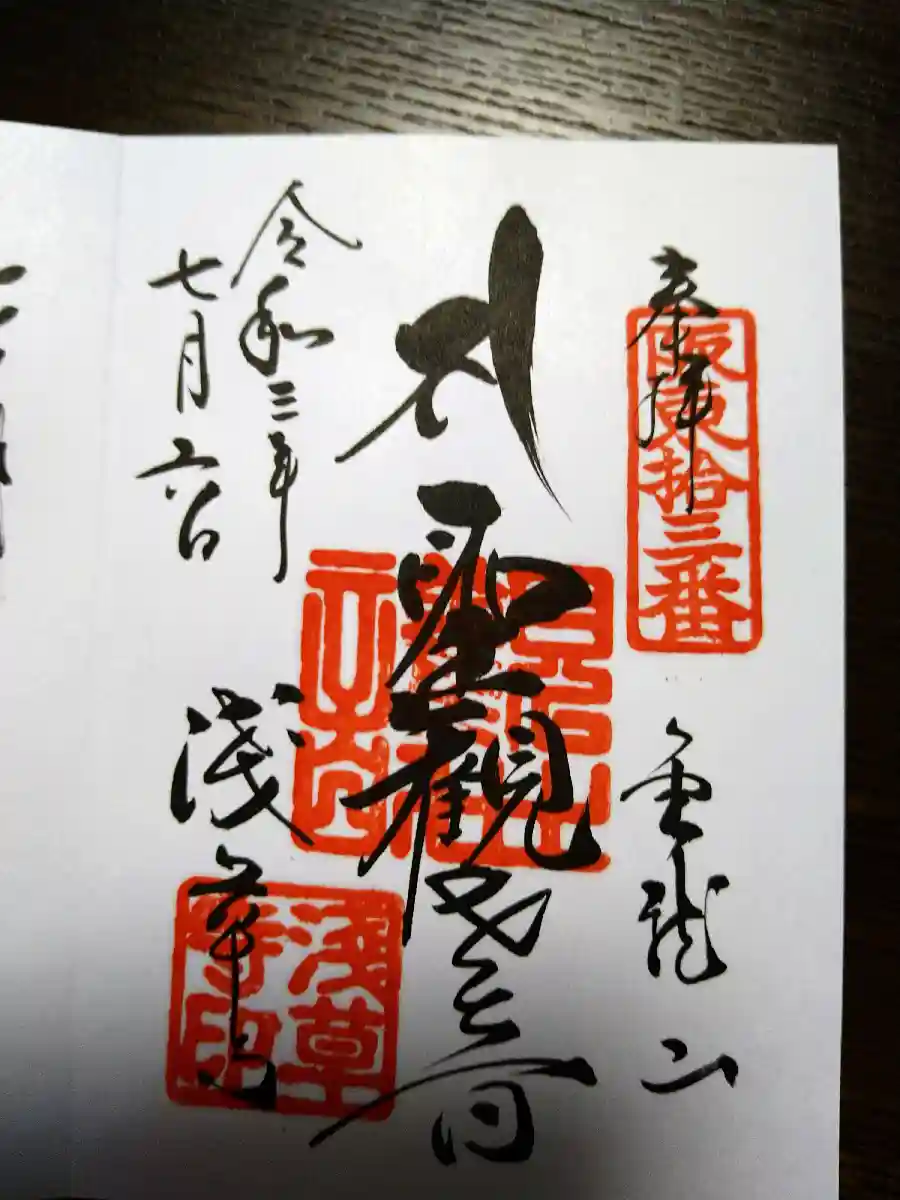 奉拝
阪東拾三番
金龍山
聖観世音
令和三年
七月六日
浅草寺
浅草
寺印